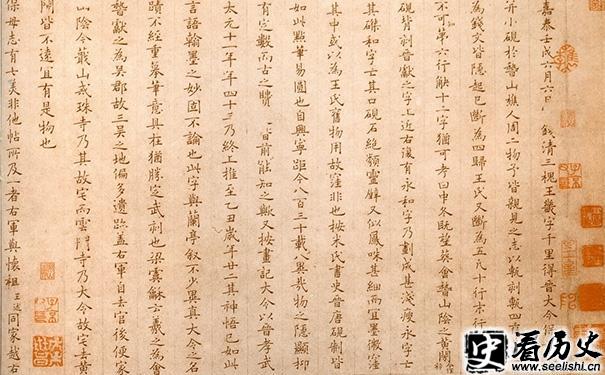 嘉泰壬戌六月六日 錢清三槐王畿字千里得晉大令保
并小硯於稽山樵人周二物予皆親見之志以甎刻甎四
為錢文皆隱起已斷為四歸王氏又斷為五凡十行末行
不可第六行缺十二字猶可考曰中冬既望葬會稽山陰之黃閍
硯背刻晉獻之字上近右復有永和字乃劃成甚淺瘦永字亡
其磔和字亡其口硯石絕類靈壁又似鳳咮甚細而宜墨微窪
其中或以為王氏舊物用故窪非也按米氏書史晉唐硯制皆
如此點筆易圓也自興寧距今八百三十載八與幾物之隱顯抑
有定數而古之賢者前能知之歟又按畫記大令以晉孝武
太元十一年年四十三乃終上推至乙丑歲年廿二其神悟已如此
言語翰墨之妙固不論也此字與蘭亭敘不少異真大令之名
蹟不經重摹筆意具在猶勝定武刻也梁虞龢云羲之為會
稽獻之為吳郡故三吳之地偏多遺跡蓋右軍自去官後便家
山陰今蕺山戒珠寺乃其故宅而雲門寺乃大令故宅去黃
閍皆不遠宜有是物也
保母志有七美非他帖所及一者右軍與懷祖王述同家越右
看历史
www.seelishi.cn